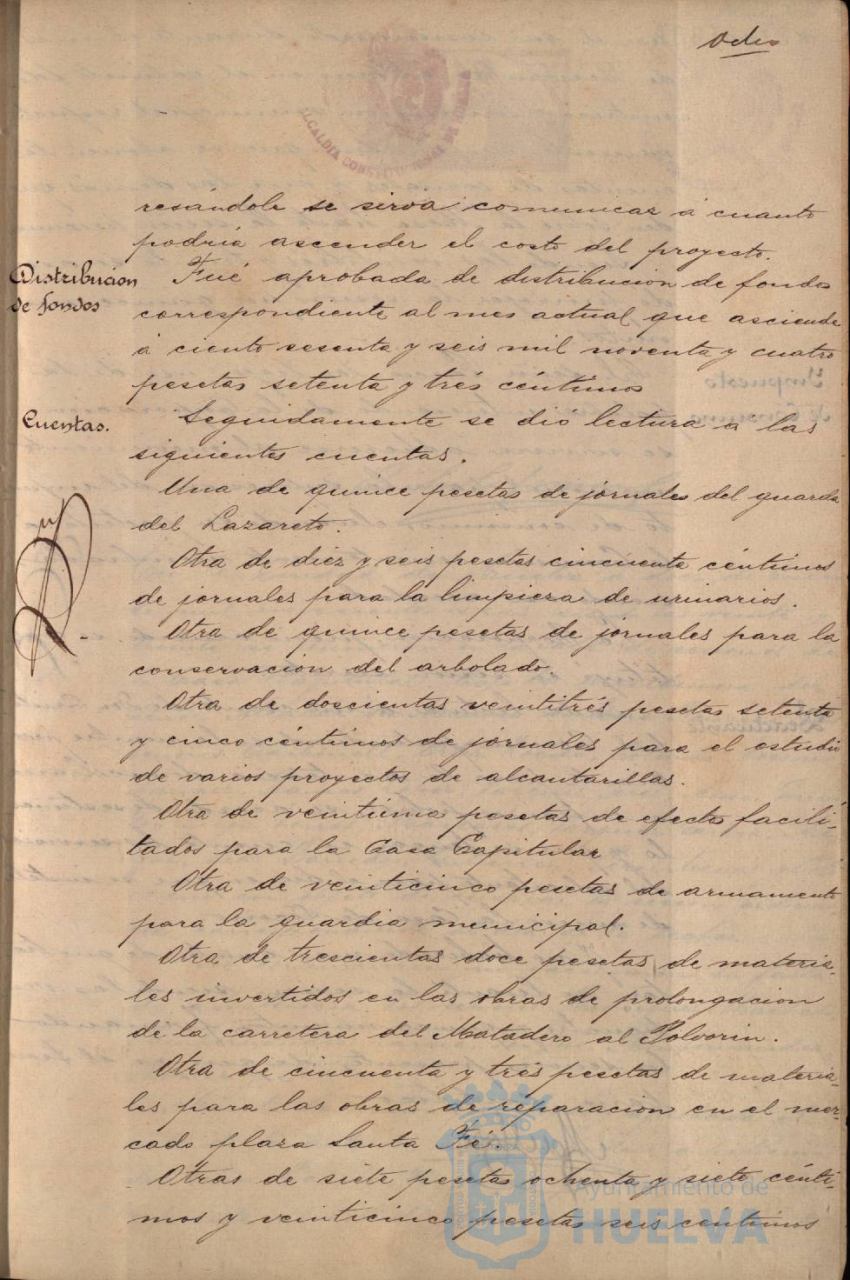 Ocho
ALCALDIA CONSTITUCIONAL DE HUELVA
resándole se sirva comunicar á cuanto
podría ascender el costo del proyecto.
Distribucion
de fondos
Fué aprobada de distribucion de fondos
correspondiente al mes actual que asciende
á ciento sesenta y seis mil noventa y cuatro
pesetas setenta y trés céntimos
Cuentas.
Seguidamente se dió lectura á las
siguientes cuentas.
Una de quince pesetas de jornales del guarda
del Lazareto.
Otra de diez y seis pesetas cincuenta céntimos
de jornales para la limpieza de urinarios.
Otra de quince pesetas de jornales para la
conservacion del arbolado.
Otra de doscientas veintitrés pesetas setenta
y cinco céntimos de jornales para el estudio
de varios proyectos de alcantarillas.
Otra de veintiuna pesetas de efectos facili-
tados para la Casa Capitular
Otra de veinticinco pesetas de armamento
para la guardia municipal.
Otra de trescientas doce pesetas de materia-
les invertidos en las obras de prolongacion
de la carretera del Matadero al Polvorin.
Otra de cincuenta y trés pesetas de materia-
les para las obras de reparacion en el mer-
cado plaza Santa Fé.
Otras de siete pesetas ochenta y siete cénti-
mos y veinticinco pesetas seis centimos
Ayuntamiento de
HUELVA